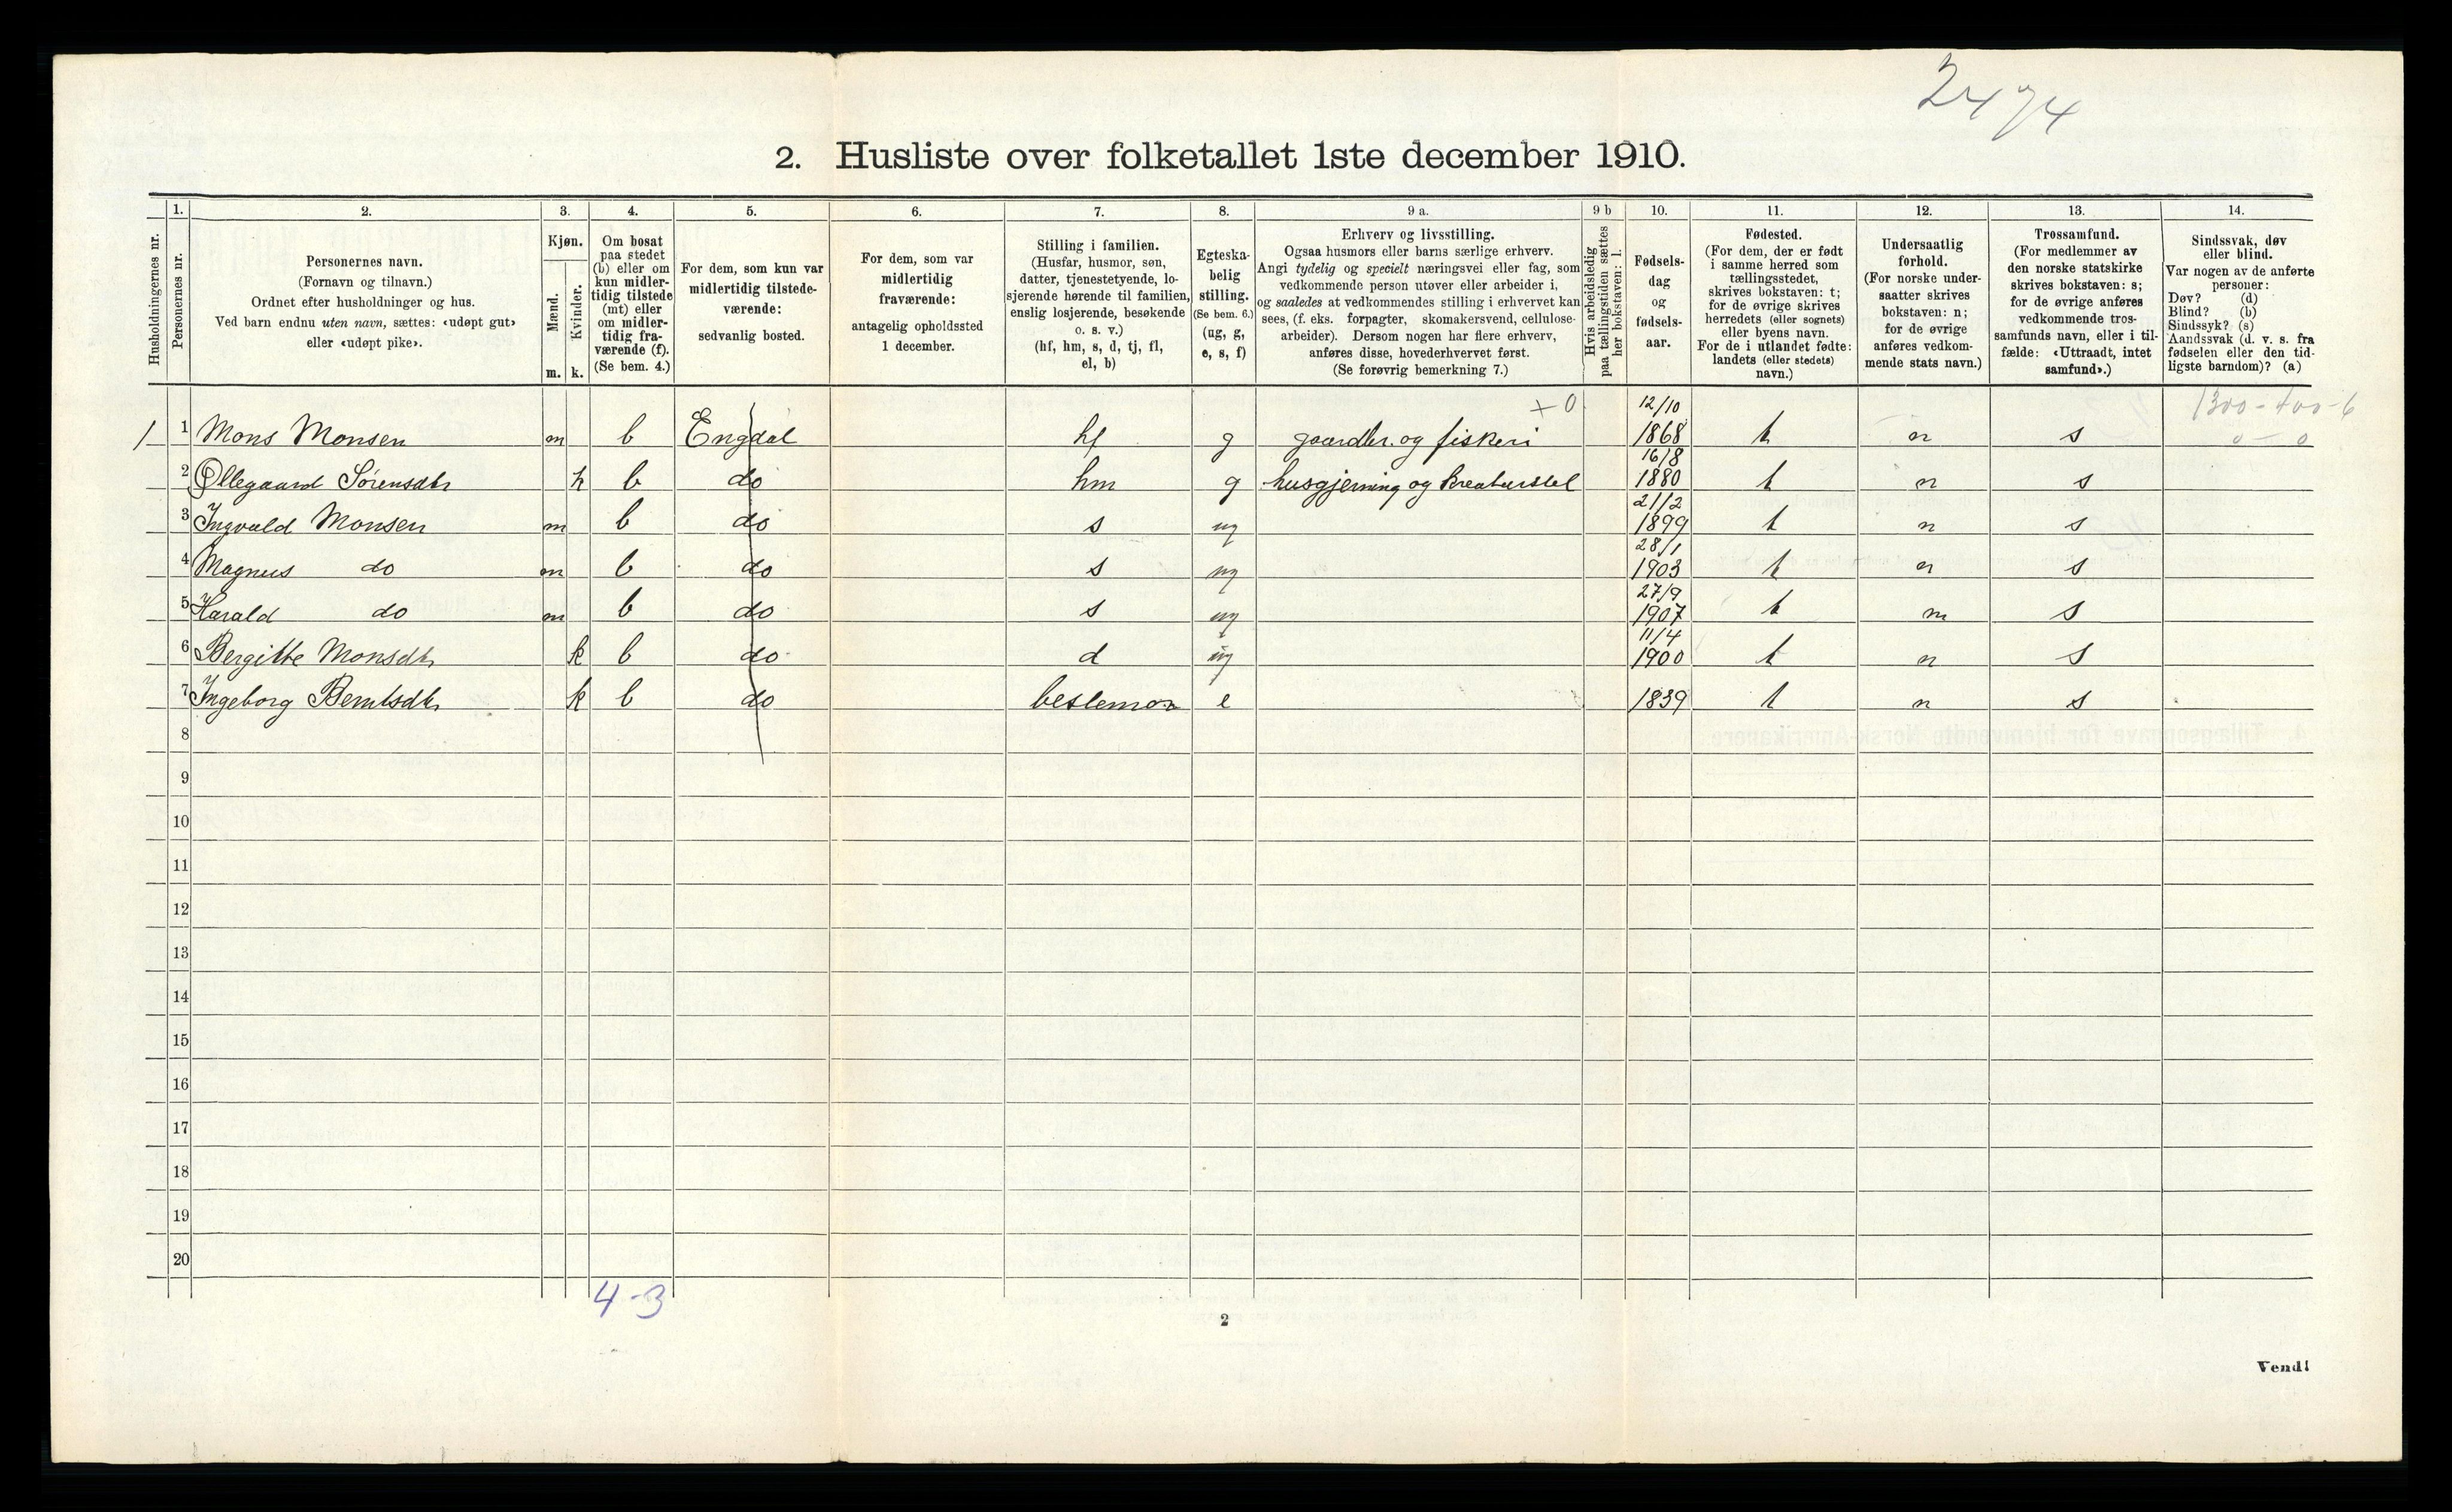 2474
2. Husliste over folketallet 1ste december 1910.
Husholdningernes nr.
1. Personernes nr.
2. Personernes navn.
(Fornavn og tilnavn.)
Ordnet efter husholdninger og hus.
Ved barn endnu uten navn, sættes: «udøpt gut»
eller «udøpt pike».
3. Kjøn.
Mænd. Kvinder.
m. k.
4. Om bosat
paa stedet
(b) eller om
kun midler-
tidig tilstede
(mt) eller
om midler-
tidig fra-
værende (f).
(Se bem. 4.)
5. For dem, som kun var
midlertidig tilstede-
værende:
sedvanlig bosted.
6. For dem, som var
midlertidig
fraværende:
antagelig opholdssted
1 december.
7. Stilling i familien.
(Husfar, husmor, søn,
datter, tjenestetyende, lo-
sjerende hørende til familien,
enslig losjerende, besøkende
o. s. v.)
(hf, hm, s, d, tj, fl,
el, b)
8. Egteska-
belig
stilling.
(Se bem. 6.)
(ug, g,
e, s, f)
9 a. Erhverv og livsstilling.
Ogsaa husmors eller barns særlige erhverv.
Angi tydelig og specielt næringsvei eller fag, som
vedkommende person utøver eller arbeider i,
og saaledes at vedkommendes stilling i erhvervet kan
sees, (f. eks. forpagter, skomakersvend, cellulose-
arbeider). Dersom nogen har flere erhverv,
anføres disse, hovederhvervet først.
(Se forøvrig bemerkning 7.)
9 b Hvis arbeidsledig
paa tællingstiden sættes
her bokstaven: l.
10. Fødsels-
dag
og
fødsels-
aar.
11. Fødested.
(For dem, der er født
i samme herred som
tællingsstedet,
skrives bokstaven: t;
for de øvrige skrives
herredets (eller sognets)
eller byens navn.
For de i utlandet fødte:
landets (eller stedets)
navn.)
12. Undersaatlig
forhold.
(For norske under-
saatter skrives
bokstaven: n;
for de øvrige
anføres vedkom-
mende stats navn.)
13. Trossamfund.
(For medlemmer av
den norske statskirke
skrives bokstaven: s;
for de øvrige anføres
vedkommende tros-
samfunds navn, eller i til-
fælde: «Uttraadt, intet
samfund».)
14. Sindssvak, døv
eller blind.
Var nogen av de anførte
personer:
Døv? (d)
Blind? (b)
Sindssyk? (s)
Aandssvak (d. v. s. fra
fødselen eller den tid-
ligste barndom)? (a)
+0 1300-400-6
0 — 0
1 1 Mons Monsen m b Engdal hf g gaardbr. og fiskeri 12/10 1868 t n s
2 Ollegaard Sørensdtr k b do hm g husgjerning og Kreaturstel 16/8 1880 t n s
3 Ingvald Monsen m b do s ug 21/2 1899 t n s
4 Magnus do m b do s ug 28/1 1903 t n s
5 Harald do m b do s ug 27/9 1907 t n s
6 Bergitte Monsdtr k b do d ug 11/4 1900 t n s
7 Ingeborg Berntsdtr k b do bestemor e 1839 t n s
8
9
10
11
12
13
14
15
16
17
18
19
20
4-3
2
Vend!